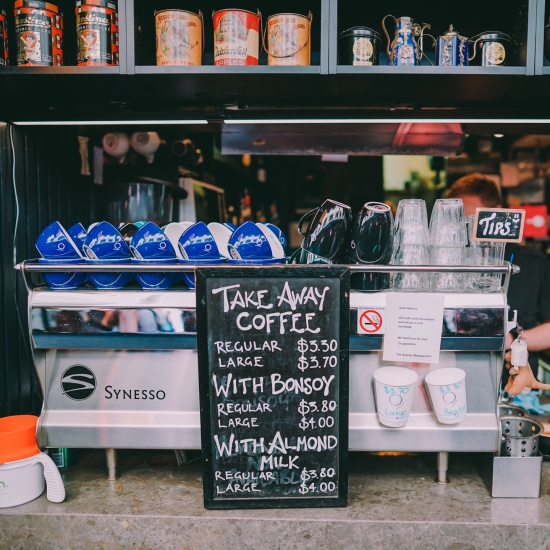 TIPS
TAKE AWAY
COFFEE
REGULAR $3.30
LARGE $3.70
WITH BONSOY
REGULAR $3.80
LARGE $4.00
WITH ALMOND
MILK
REGULAR $3.80
LARGE $4.00
SYNESSO
$3.70
Large
$3.30